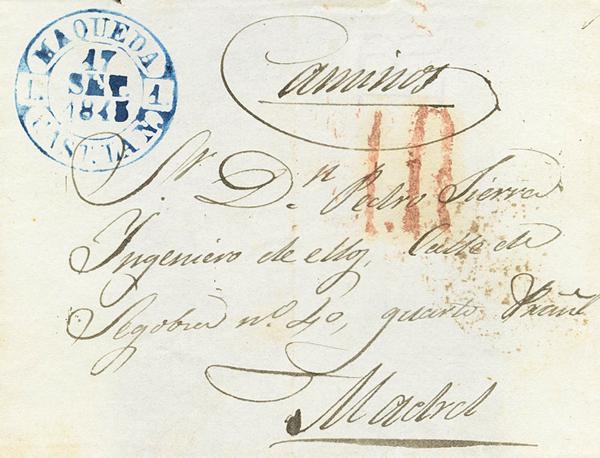 MAQUEDA
17
SET.
1845
1 1
CAST.LA N.
Caminos
1.R
Sr. Dn. Pedro Sierra
Ingeniero de ellos, Calle de
Segobia nº. 40, quarto
Madrd